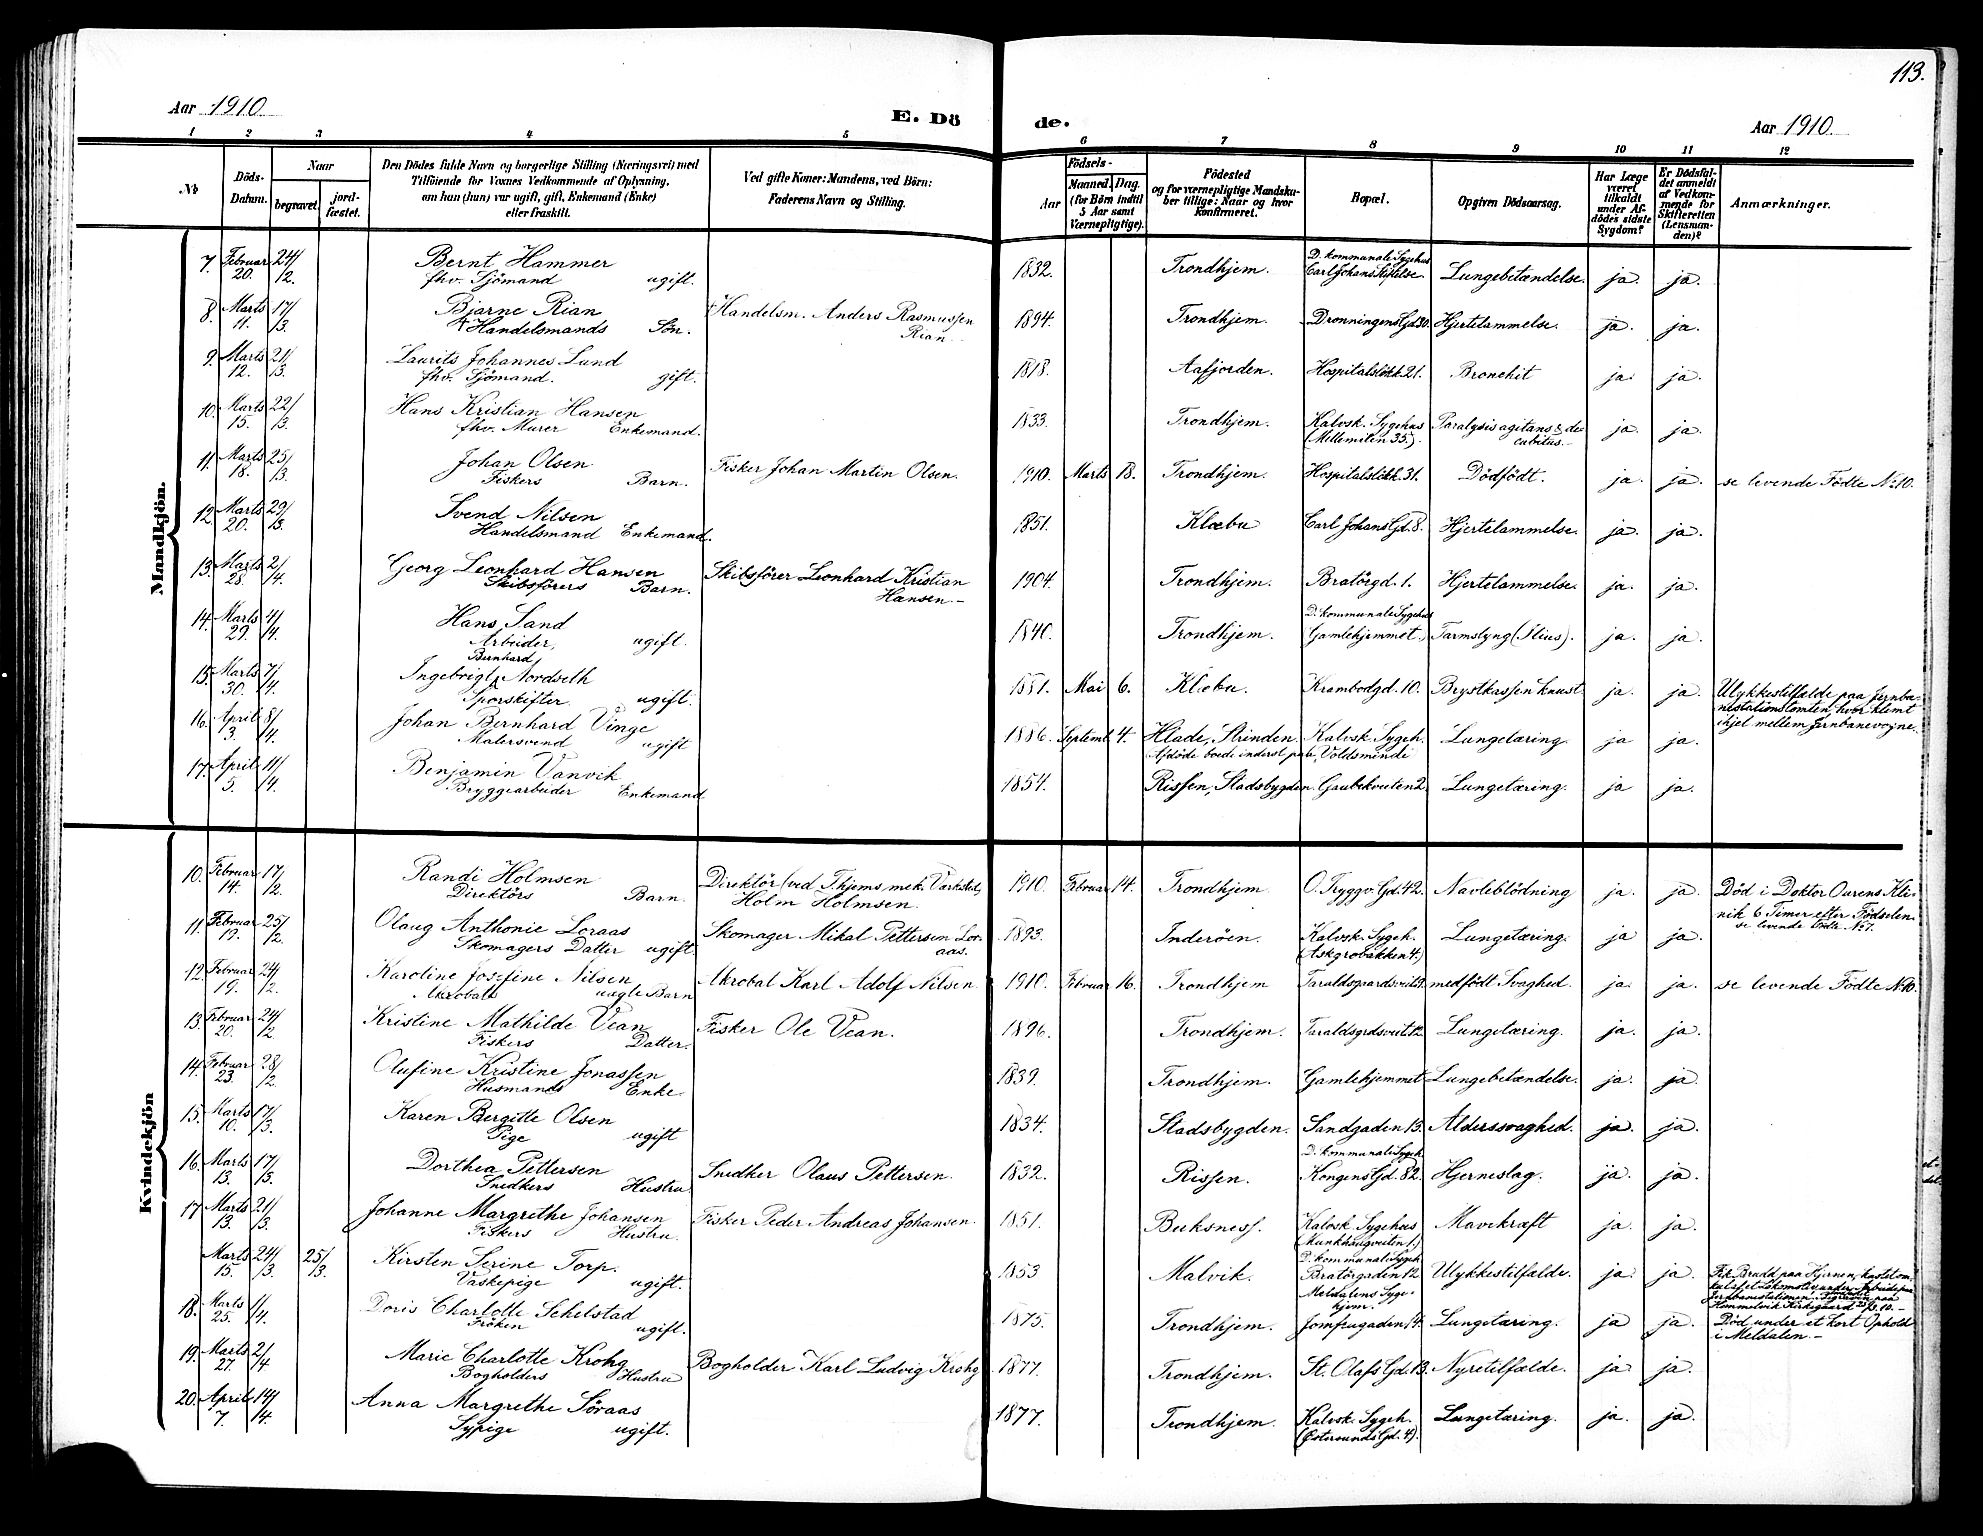 113.
Aar 1910. E. Dö de. Aar 1910.
1 2 3 4 5 6 7 8 9 10 11 12
No
Döds-Datum.
Naar
begravet. jord-fæstet.
Den Dödes fulde Navn og borgerlige Stilling (Næringsvei) med
Tilföiende for Voxnes Vedkommende af Oplysning,
om han (hun) var ugift, gift, Enkemand (Enke)
eller fraskilt.
Ved gifte Koner: Mandens, ved Börn:
Faderens Navn og Stilling.
Födsels-
Aar Maaned. Dag.
(for Börn indtil
5 Aar samt
Værnepligtige).
Födested
og for værnepligtige Mandsku-
ber tillige: Naar og hvor
konfirmeret.
Bopæl.
Opgiven Dödsaarsag.
Har Læge
været
tilkaldt
under Af-
dödes sidste
Sygdom?
Er Dödsfal-
det anmeldt
af Vedkom-
mende for
Skifteretten
(Lensman-
den)?
Anmærkninger.
Mandkjön.
7. Februar 20. 24/2. Bernt Hammer 1832. Trondhjem. D. kommunale Sygehus Carl Johans Stiftelse. Lungebetændelse. ja. ja.
fhv. Sjömand ugift.
8. Marts 11. 17/3. Bjarne Rian †Handelsm. Anders Rasmussen 1894. Trondhjem. Dronningens Gd. 30. Hjertelammelse. ja. ja.
†Handelsmands Sön. Rian.
9. Marts 12. 21/3. Laurits Johannes Lund 1818. Aafjorden. Hospitalslökk. 21. Bronchit ja. ja.
fhv. Sjömand. gift.
10. Marts 15. 22/3. Hans Kristian Hansen 1833. Trondhjem. Kalvsk. Sygehus Paralysis agitans & de- ja. ja.
fhv. Murer Enkemand. (Mellemiten 35.). cubitus.
11. Marts 18. 25/3. Johan Olsen Fisker Johan Martin Olsen. 1910. Marts 18. Trondhjem. Hospitalslökk. 31. Dödfödt. ja. ja. se levende Födte No 10.
Fiskers Barn.
12. Marts 20. 29/3. Svend Nilsen 1851. Klæbu Carl Johans Gd. 8. Hjertelammelse. ja. ja.
Handelsmand Enkemand.
13. Marts 28. 2/4. Georg Leonhard Hansen Skibsförer Leonhard Kristian 1904. Trondhjem. Bratörgd. 1. Hjertelammelse. ja. ja.
Skibsförers Barn. Hansen.
14. Marts 29. 4/4. Hans Sand 1840. Trondhjem. D. kommunale Sygehus Gamlehjemmet. Tarmslyng (Ilius). ja. ja.
Arbeider, ugift.
15. Marts 30. 7/4. Ingebrigt Bernhard Nordseth 1881. Mai 6. Klæbu. Krambodgd. 10. Brystkassen knust. ja. ja. Ulykkestilfælde paa Jernba-
Sporskifter ugift. nestationstomten, hvor klemt
ihjel mellem Jernbanevogne.
16. April 3. 8/4. Johan Bernhard Vinge 1886. Septemb. 4. Hlade, Strinden. Kalvsk. Sygeh. Lungetæring. ja ja.
Malersvend ugift Afdöde boede inderst paa Voldsminde
17. April 5. 11/4. Benjamin Vanvik 1854. Rissen, Stadsbygden. Gaubekveiten 2. Lungetæring. ja ja.
Bryggearbeider Enkemand
Kvindekjön
10. Februar 14. 17/2. Randi Holmsen Direktör (ved Thjems mek. Værksted) 1910. Februar 14. Trondhjem O. Tryggv. Gd. 42. Navleblödning ja. ja. Död i Doktor Ourens Kli-
Direktörs Barn. Holm Holmsen. nik 6 Timer efter Födselen.
se levende Födte No 7.
11. Februar 19. 25/2. Olaug Anthonie Loraas Skomager Mikal Pettersen Lor- 1893. Inderöen. Kalvsk. Sygeh. Lungetæring. ja ja.
Skomagers Datter ugift. aas. (Askgrobakken 4.)
12. Februar 19. 24/2. Karoline Josefine Nilsen Akrobat Karl Adolf Nilsen. 1910. Februar 16. Trondhjem Taraldsgaardsveit. 9. medfödt Svaghed. ja. ja. se levende Födte No 10.
Akrobats uægte Barn
13. Februar 20. 24/2 Kristine Mathilde Vean Fisker Ole Vean. 1896. Trondhjem. Taraldsgrdsveit. 12. Lungetæring. ja. ja.
Fiskers Datter.
14. Februar 23. 28/2. Olufine Kristine Jonassen 1839. Trondhjem. Gamlehjemmet Lungebetændelse. ja. ja.
Husmands Enke.
15. Marts 10. 17/3. Karen Bergitte Olsen 1834. Stadsbygden. Sandgaden 13. Alderssvaghed. ja. ja.
Pige ugift
16. Marts 13. 17/3. Dorthea Pettersen Snedker Olaus Pettersen. 1832. Rissen. D. kommunale Sygeh. Kongens Gd. 82. Hjerneslag. ja. ja.
Snedkers Hustru.
17 Marts 13. 21/3. Johanne Margrethe Johansen Fisker Peder Andreas Johansen 1851. Buksness. Kalvsk. Sygehus Mavekræft ja. ja.
Fiskers Hustru. (Munkhaugveiten 1.)
Marts 15. 24/3. 25/3. Kirsten Serine Torp. 1853 Malvik. D. kommunale Sygeh. Bratörgaden 12 Ulykkestilfælde. ja. ja.
Vaskepige ugift.
Hommelvik Kirkegaard 25/3 10.
18. Marts 25. 1/4. Doris Charlotte Schelstad 1875. Trondhjem. Meldalens Syge-hjem. Jomfrugaden 4. Lungetæring. ja ja. Död under et kort Ophold
Fröken ugift. i Meldalen.
19. Marts 27. 2/4 Marie Charlotte Krohg Bogholder Karl Ludvig Krohg 1877. Trondhjem. St. Olafs Gd. 13. Nyretilfælde. ja ja.
Bogholders Hustru
20. April 7. 14/4. Anna Margrethe Söraas 1877. Trondhjem. Kalvsk. Sygeh. Lungetæring. ja. ja.
Sypige ugift. (Østersunds Gd. 4).